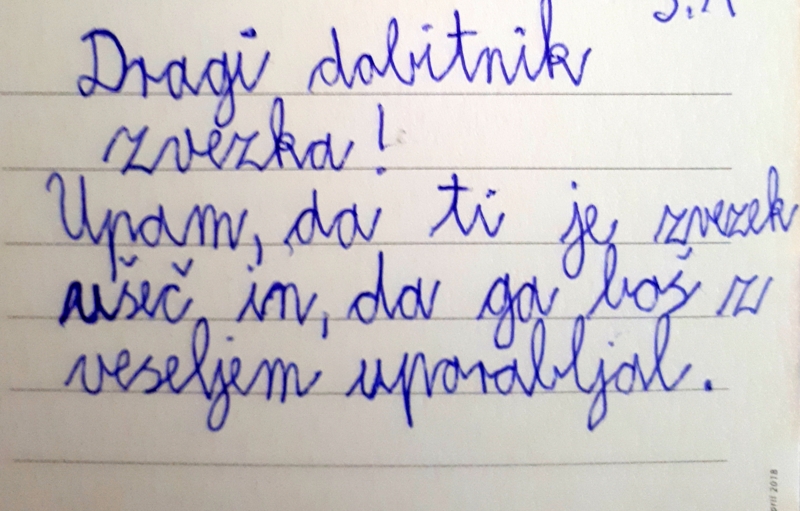 Dragi dobitnik
zvezka!
Upam, da ti je zvezek
všeč in, da ga boš z
veseljem uporabljal.